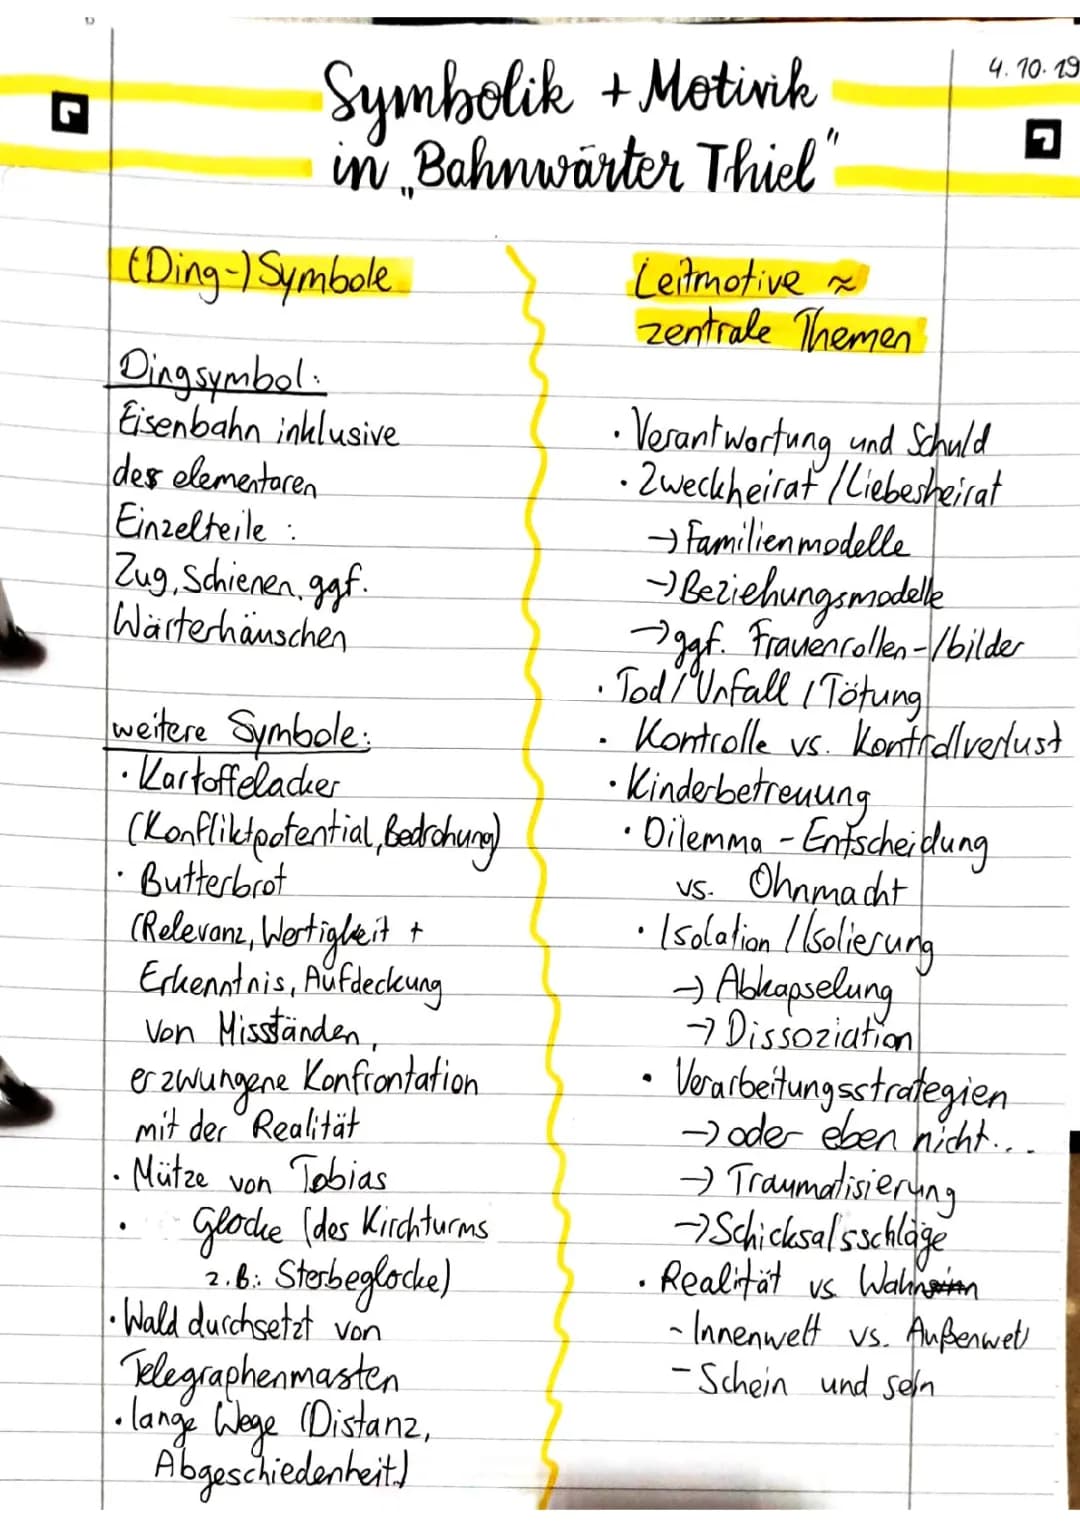 4.10.19
Symbolik + Motivik
in „Bahnwärter Thiel"
(Ding-) Symbole
Dingsymbol:
Eisenbahn inklusive
der elementaren
Einzelteile :
Zug, Schienen, ggf.
Wärterhäuschen
weitere Symbole:
· Kartoffelacker
(Konfliktpotential, Bedrohung)
· Butterbrot
(Relevanz, Wertigkeit +
Erkenntnis, Aufdeckung
von Missständen,
erzwungene Konfrontation
mit der Realität
· Mütze von Tobias
· Glocke (des Kirchturms
z.B.: Sterbeglocke)
· Wald durchsetzt von
Telegraphenmasten
· lange Wege (Distanz,
Abgeschiedenheit)
Leitmotive ≈
zentrale Themen
· Verantwortung und Schuld
· Zweckheirat / Liebesheirat
→ Familienmodelle
→ Beziehungsmodelle
→ ggf. Frauenrollen-/bilder
· Tod / Unfall / Tötung
· Kontrolle vs. Kontrollverlust
· Kinderbetreuung
· Dilemma - Entscheidung
vs. Ohnmacht
· Isolation / Isolierung
→ Abkapselung
→ Dissoziation
· Verarbeitungsstrategien
→ oder eben nicht...
→ Traumatisierung
→ Schicksalsschläge
· Realität vs Wahn
- Innenwelt vs. Außenwelt
- Schein und sein